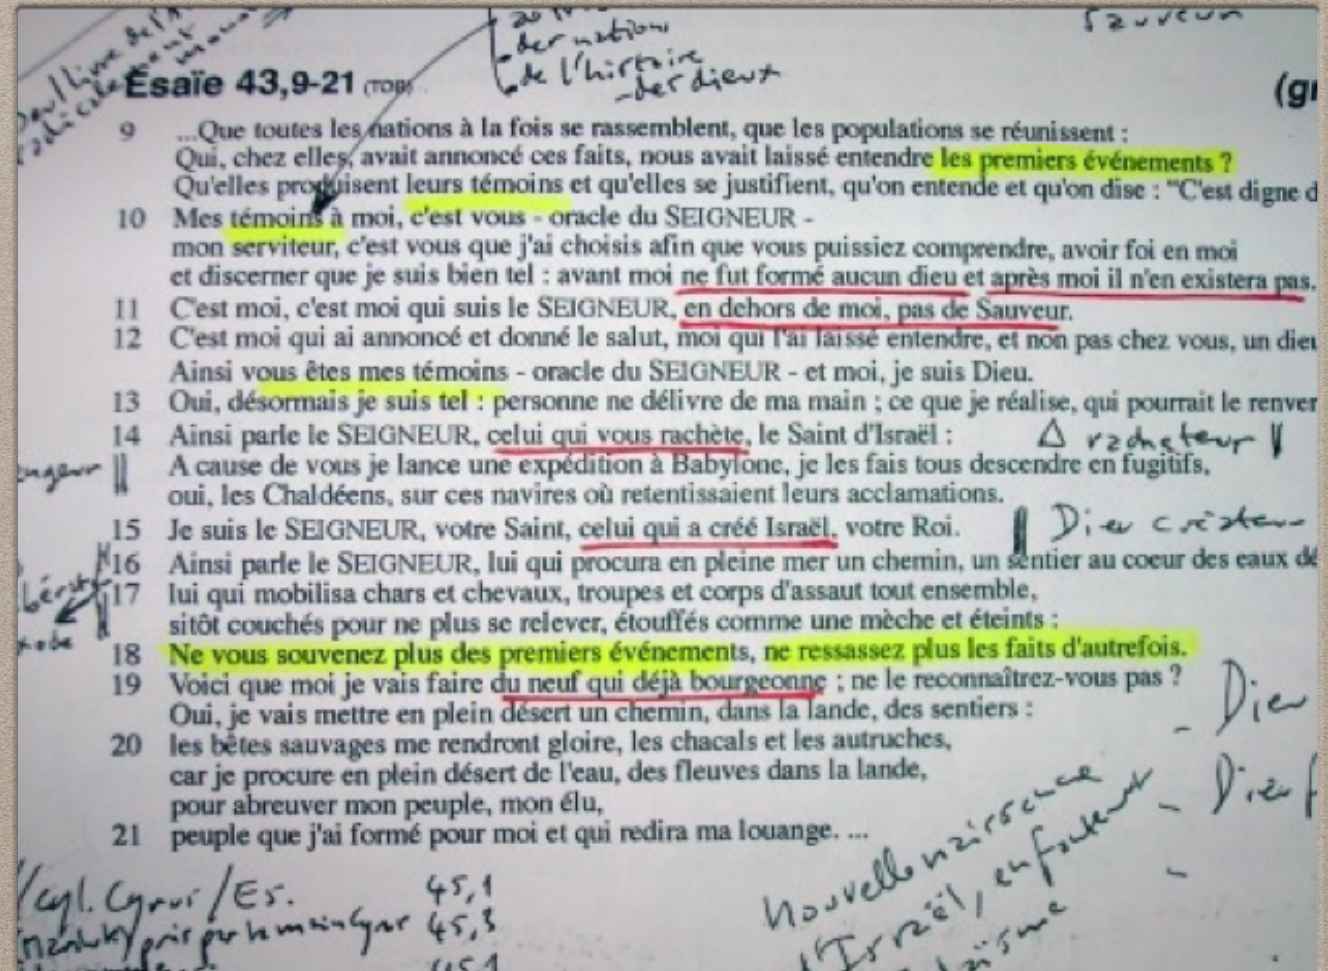 Sauveur
des nations
de l'histoire
- des dieux
Ésaïe 43,9-21 (TOB)
9 ...Que toutes les nations à la fois se rassemblent, que les populations se réunissent :
Qui, chez elles, avait annoncé ces faits, nous avait laissé entendre les premiers événements ?
Qu'elles produisent leurs témoins et qu'elles se justifient, qu'on entende et qu'on dise : "C'est digne d
10 Mes témoins à moi, c'est vous - oracle du SEIGNEUR -
mon serviteur, c'est vous que j'ai choisis afin que vous puissiez comprendre, avoir foi en moi
et discerner que je suis bien tel : avant moi ne fut formé aucun dieu et après moi il n'en existera pas.
11 C'est moi, c'est moi qui suis le SEIGNEUR, en dehors de moi, pas de Sauveur.
12 C'est moi qui ai annoncé et donné le salut, moi qui l'ai laissé entendre, et non pas chez vous, un dieu
Ainsi vous êtes mes témoins - oracle du SEIGNEUR - et moi, je suis Dieu.
13 Oui, désormais je suis tel : personne ne délivre de ma main ; ce que je réalise, qui pourrait le renver
14 Ainsi parle le SEIGNEUR, celui qui vous rachète, le Saint d'Israël :
A cause de vous je lance une expédition à Babylone, je les fais tous descendre en fugitifs,
oui, les Chaldéens, sur ces navires où retentissaient leurs acclamations.
15 Je suis le SEIGNEUR, votre Saint, celui qui a créé Israël, votre Roi. Dieu créateur
16 Ainsi parle le SEIGNEUR, lui qui procura en pleine mer un chemin, un sentier au coeur des eaux dé
17 lui qui mobilisa chars et chevaux, troupes et corps d'assaut tout ensemble,
sitôt couchés pour ne plus se relever, étouffés comme une mèche et éteints :
18 Ne vous souvenez plus des premiers événements, ne ressassez plus les faits d'autrefois.
19 Voici que moi je vais faire du neuf qui déjà bourgeonne ; ne le reconnaîtrez-vous pas ?
Oui, je vais mettre en plein désert un chemin, dans la lande, des sentiers :
- Dieu
20 les bêtes sauvages me rendront gloire, les chacals et les autruches,
car je procure en plein désert de l'eau, des fleuves dans la lande,
- Dieu
pour abreuver mon peuple, mon élu,
21 peuple que j'ai formé pour moi et qui redira ma louange. ...
Nouvelle naissance
d'Israël, enfantement
/cyl. Cyrus/Es. 45,1
pris par la main Cyrus 45,3
45,1